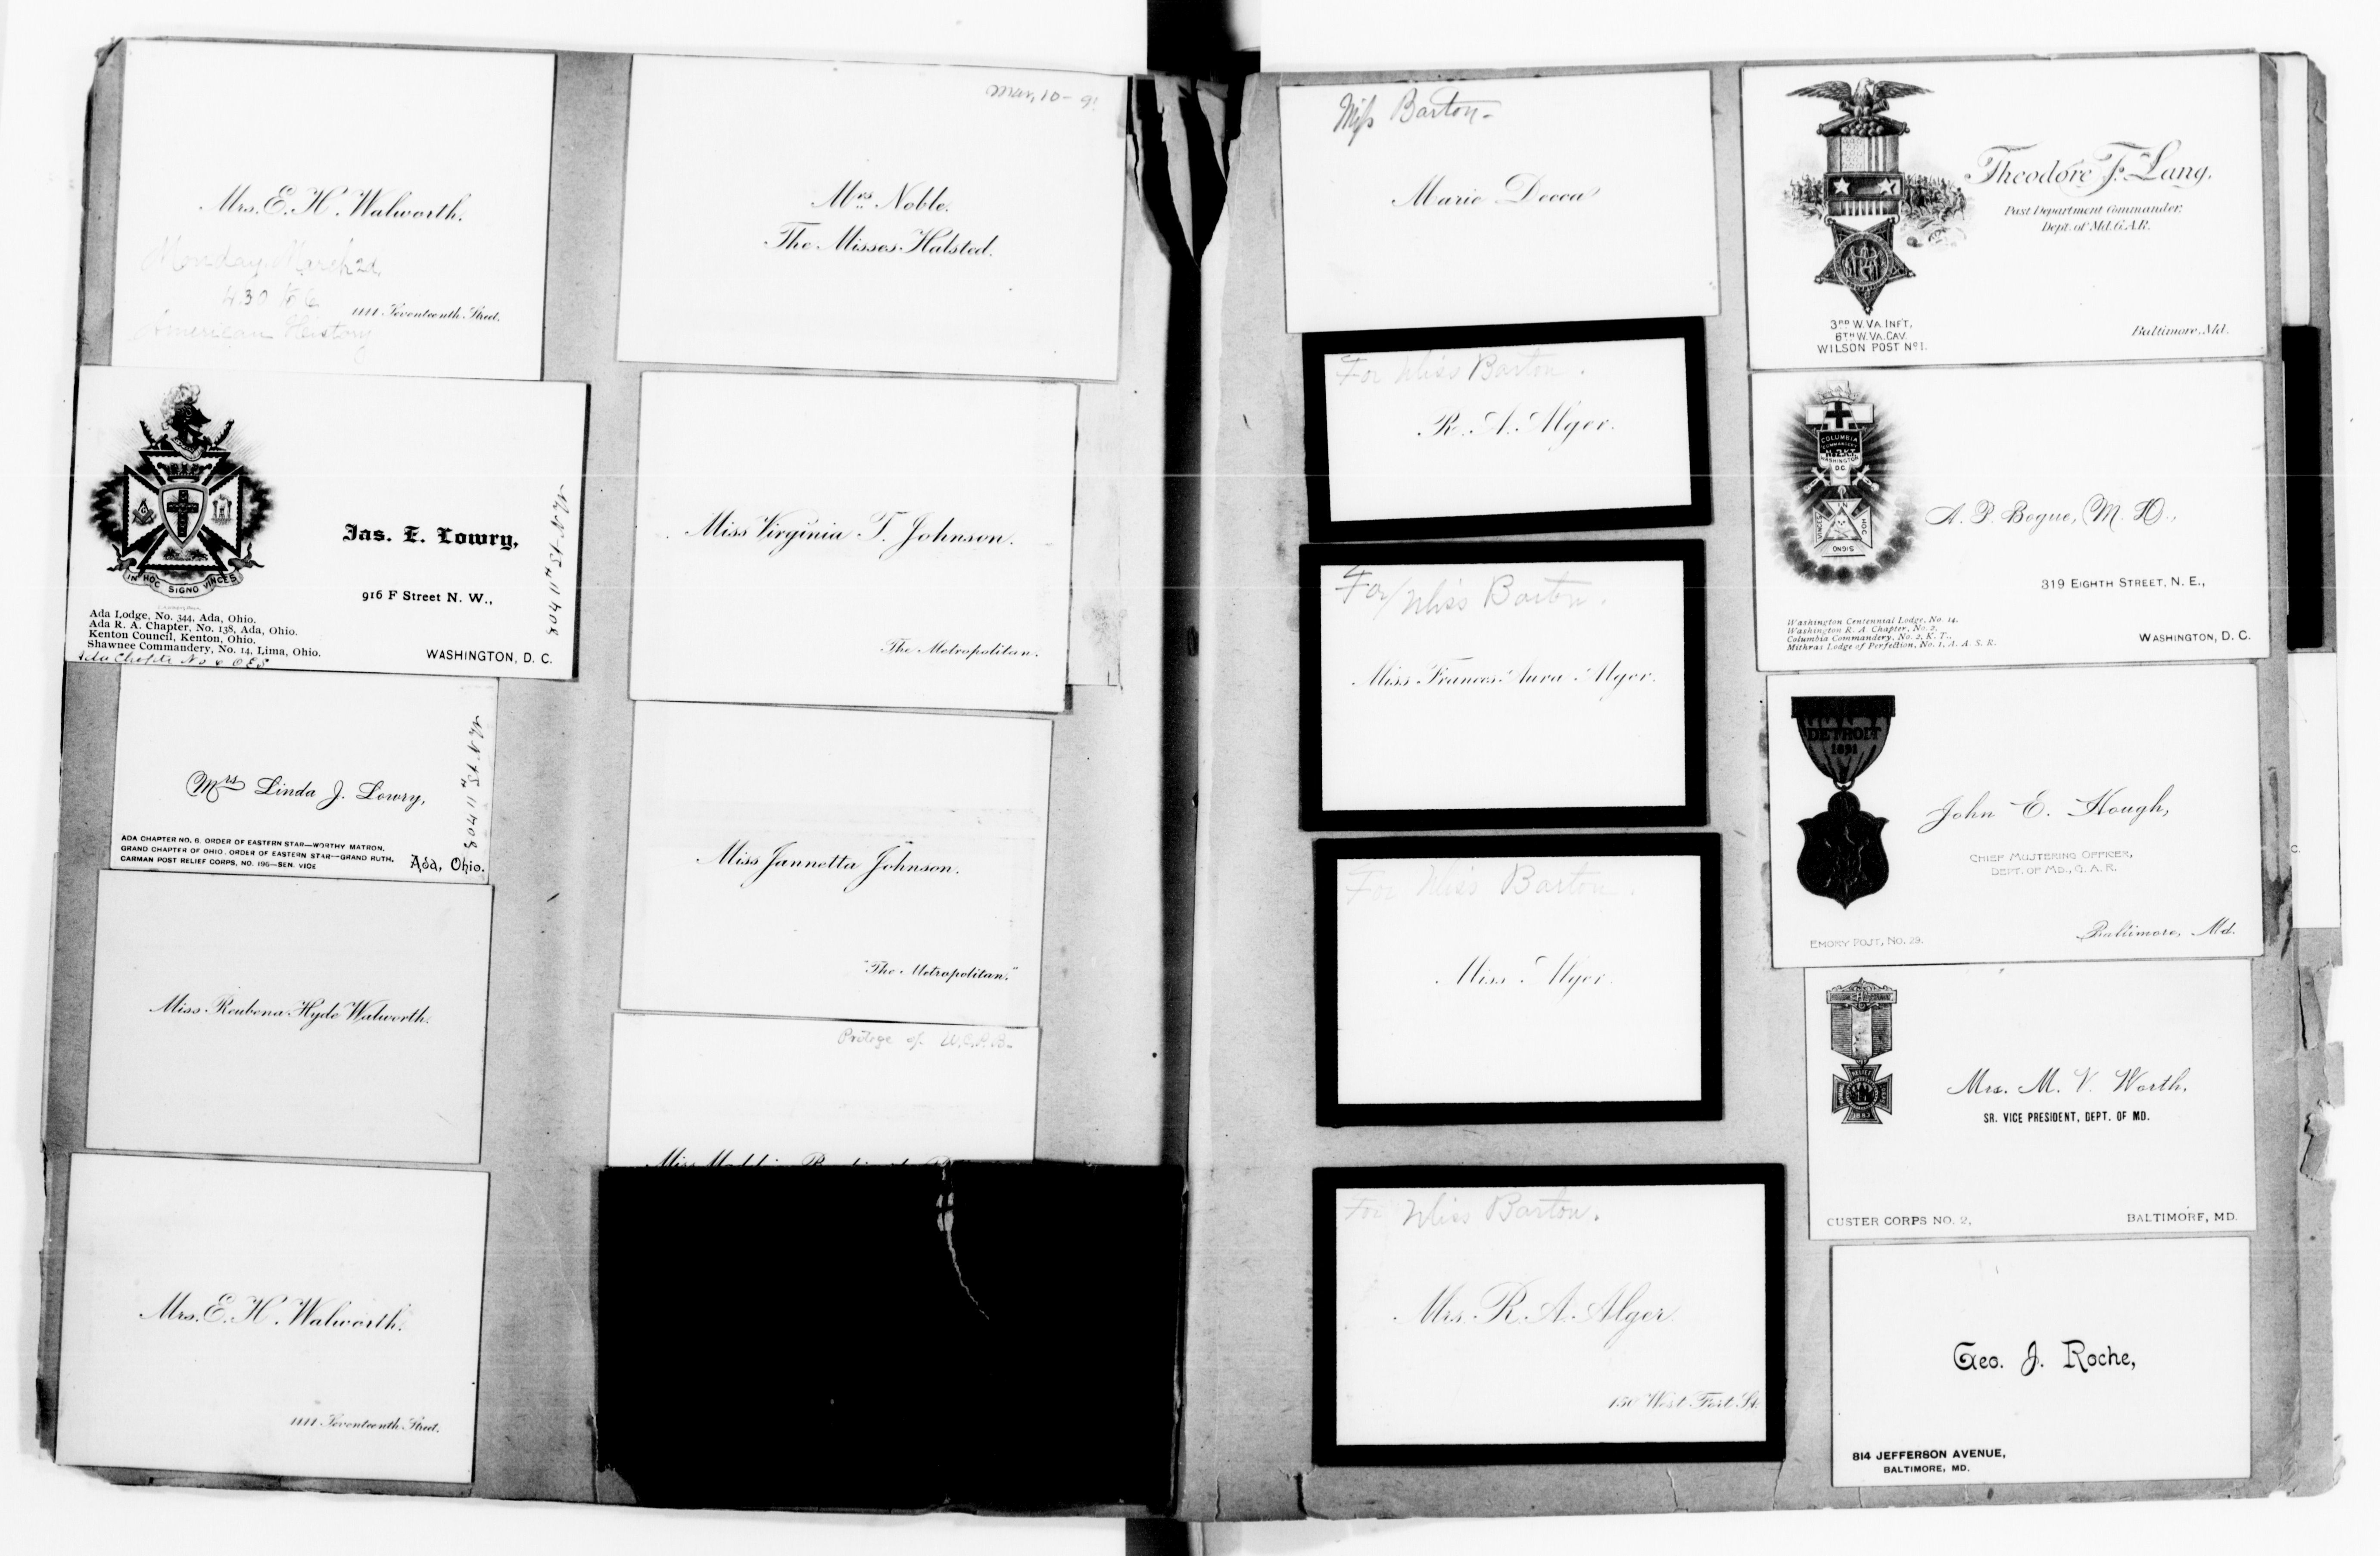 Mrs. E. H. Walworth.
Monday, March 21,
4.30 to 6
1111 Seventeenth Street.
American History
IN HOC SIGNO VINCES
Jas. E. Lowry,
916 F Street N. W.,
WASHINGTON, D. C.
804 11th St N.W
Ada Lodge, No. 344, Ada, Ohio.
Ada R. A. Chapter, No. 138, Ada, Ohio.
Kenton Council, Kenton, Ohio.
Shawnee Commandery, No. 14, Lima, Ohio.
Ada Chapter No 6 O E S
Mrs Linda J. Lowry,
804 11th St N.W
ADA CHAPTER NO. 6. ORDER OF EASTERN STAR—WORTHY MATRON.
GRAND CHAPTER OF OHIO. ORDER OF EASTERN STAR—GRAND RUTH.
CARMAN POST RELIEF CORPS, NO. 196—SEN. VICE
Ada, Ohio.
Miss Reubena Hyde Walworth.
Mrs. E. H. Walworth.
1111 Seventeenth Street.
Mrs. Noble.
The Misses Halsted.
Miss Virginia T. Johnson.
The Metropolitan.
Miss Jannetta Johnson.
"The Metropolitan."
Protege of
Miss
Miss Barton-
Marie Decca
For Miss Barton.
R. A. Alger.
For Miss Barton.
Miss Frances Aura Alger.
For Miss Barton.
Miss Alger.
For Miss Barton.
Mrs. R. A. Alger.
150 West Fort St.
Theodore F. Lang,
Past Department Commander,
Dept. of Md. G.A.R.
3RD W. VA. INFT,
6TH W. VA. CAV.
WILSON POST No 1.
Baltimore, Md.
COLUMBIA
COMMANDERY
WASHINGTON
D.C.
IN
HOC
SIGNO
VINCES
A. P. Bogue, M. D.,
319 EIGHTH STREET, N. E.,
WASHINGTON, D. C.
Washington Centennial Lodge, No. 14.
Washington R. A. Chapter, No. 2.
Columbia Commandery, No. 2, K. T.,
Mithras Lodge of Perfection, No. 1, A. A. S. R.
DETROIT
1891
John E. Hough,
CHIEF MUSTERING OFFICER,
DEPT. OF MD., G. A. R.
EMORY POST, NO. 29.
Baltimore, Md.
Mrs. M. V. Worth,
SR. VICE PRESIDENT, DEPT. OF MD.
1883
CUSTER CORPS NO. 2,
BALTIMORE, MD.
Geo. J. Roche,
814 JEFFERSON AVENUE,
BALTIMORE, MD.